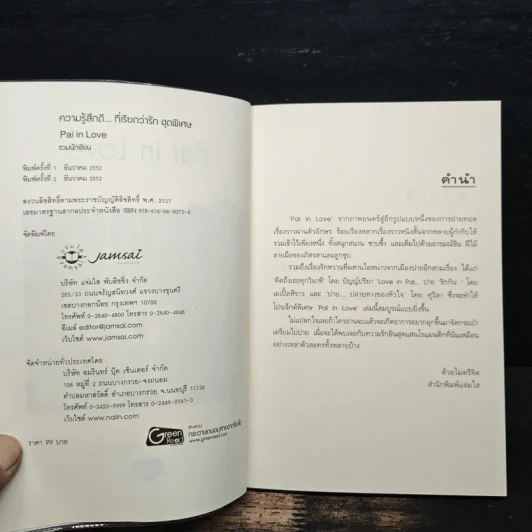 ความรู้สึกดี... ที่เรียกว่ารัก ชุดพิเศษ
Pai in Love
รวมนักเขียน
พิมพ์ครั้งที่ 1 ธันวาคม 2552
พิมพ์ครั้งที่ 2 ธันวาคม 2552
สงวนลิขสิทธิ์ตามพระราชบัญญัติลิขสิทธิ์ พ.ศ. 2537
เลขมาตรฐานสากลประจำหนังสือ ISBN 978-616-06-0072-4
จัดพิมพ์โดย
jamsai
บริษัท แจ่มใส พับลิชชิ่ง จำกัด
285/33 ถนนจรัญสนิทวงศ์ แขวงบางขุนศรี
เขตบางกอกน้อย กรุงเทพฯ 10700
โทรศัพท์ 0-2840-4800 โทรสาร 0-2840-4848
อีเมล์ editor@jamsai.com
เว็บไซต์ www.jamsai.com
จัดจำหน่ายทั่วประเทศโดย
บริษัท อมรินทร์ บุ๊ค เซ็นเตอร์ จำกัด
108 หมู่ที่ 2 ถนนบางกรวย-จงถนอม
ตำบลมหาสวัสดิ์ อำเภอบางกรวย จ.นนทบุรี 11130
โทรศัพท์ 0-2423-9999 โทรสาร 0-2449-9561-3
เว็บไซต์ www.naiin.com
ราคา 99 บาท
Green Read
กระดาษถนอมสายตา
www.greenread.com
คำนำ
'Pai in Love' จากภาพยนตร์สู่อีกรูปแบบหนึ่งของการถ่ายทอด
เรื่องราวผ่านตัวอักษร ร้อยเรียงหลากเรื่องราวหนังสั้นจากหลายผู้กำกับให้
รวมเข้าไว้เพียงหนึ่ง ทั้งสนุกสนาน ซาบซึ้ง และเต็มไปด้วยอารมณ์ขัน
รวมถึงเรื่องรักหวานที่ผสานไอหนาวจากเมืองปายอีกสามเรื่อง ได้แก่
'คิดถึงเธอทุกวินาที' โดย ปัญญ์ปรียา 'Love in Pai... ปาย รักกัน' โดย
เมเปิ้ลสีขาว และ 'ปาย... ปลายทางของหัวใจ' โดย ศุวิลา ซึ่งจะทำให้
โปรเจ็กต์พิเศษ 'Pai in Love' เล่มนี้สมบูรณ์แบบยิ่งขึ้น
ไม่แปลกใจเลยถ้าใครอ่านจบแล้วจะเกิดอาการอยากลุกขึ้นมาจัดกระเป๋า
เตรียมไปปาย เผื่อจะได้พบเจอกับความรักอันสุดแสนโรแมนติกที่นั่นเหมือน
อย่างเหล่าตัวละครทั้งหลายบ้าง
ด้วยไมตรีจิต
สำนักพิมพ์แจ่มใส